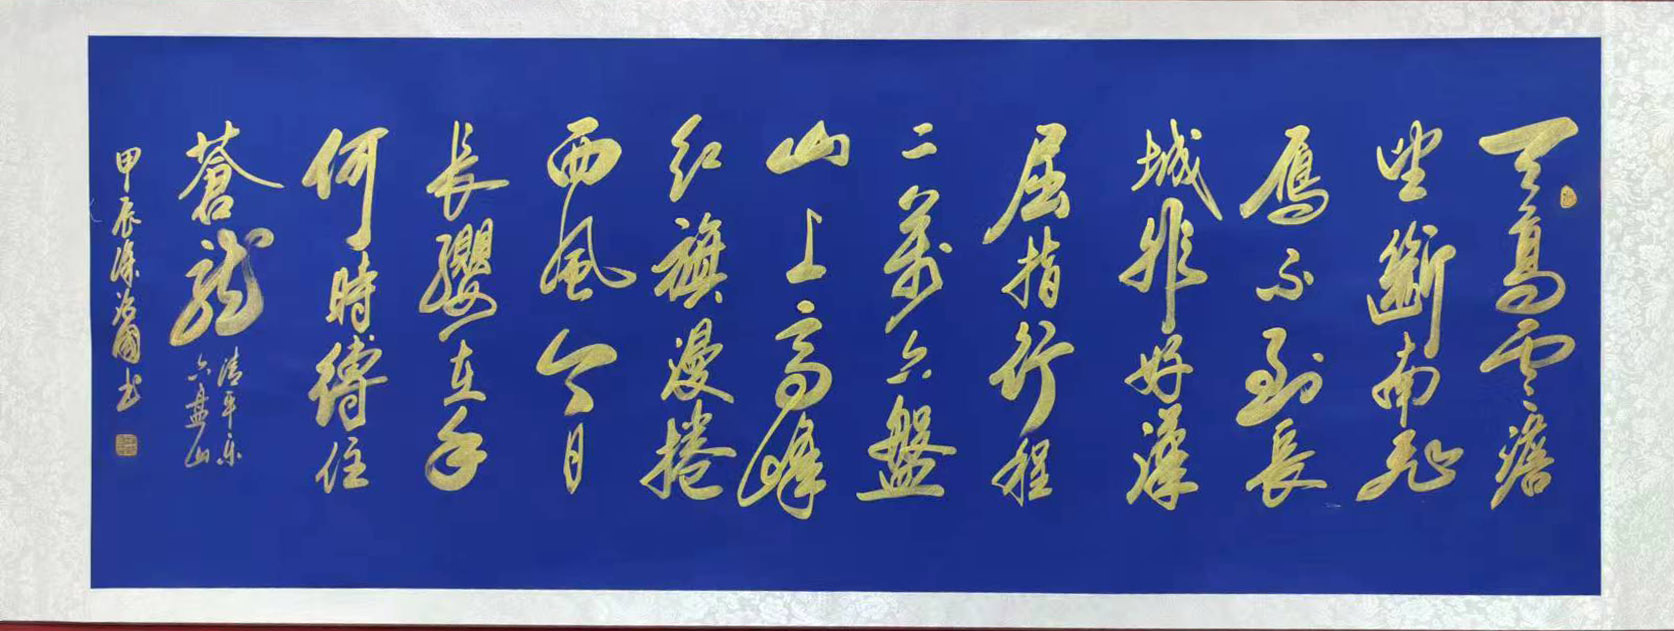 天高雲澹
望斷南飛
鴈不到長
城非好漢
屈指行程
二萬六盤
山上高峰
红旗漫捲
西風今日
長纓在手
何時縛住
蒼龍
清平乐
六盘山
甲辰涂治國书